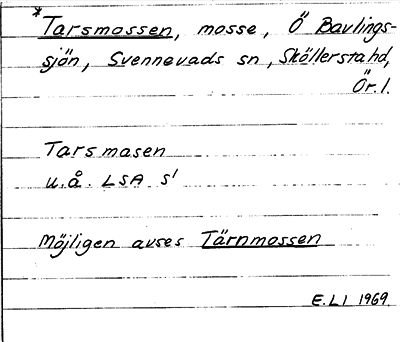 *Tarsmossen, mosse, Ö Bavlings-
sjön, Svennevads sn, Sköllersta hd,
Ör. l.
Tarsmasen
u.å. LSA S1
Möjligen avses Tärnmossen
E.LI 1969.